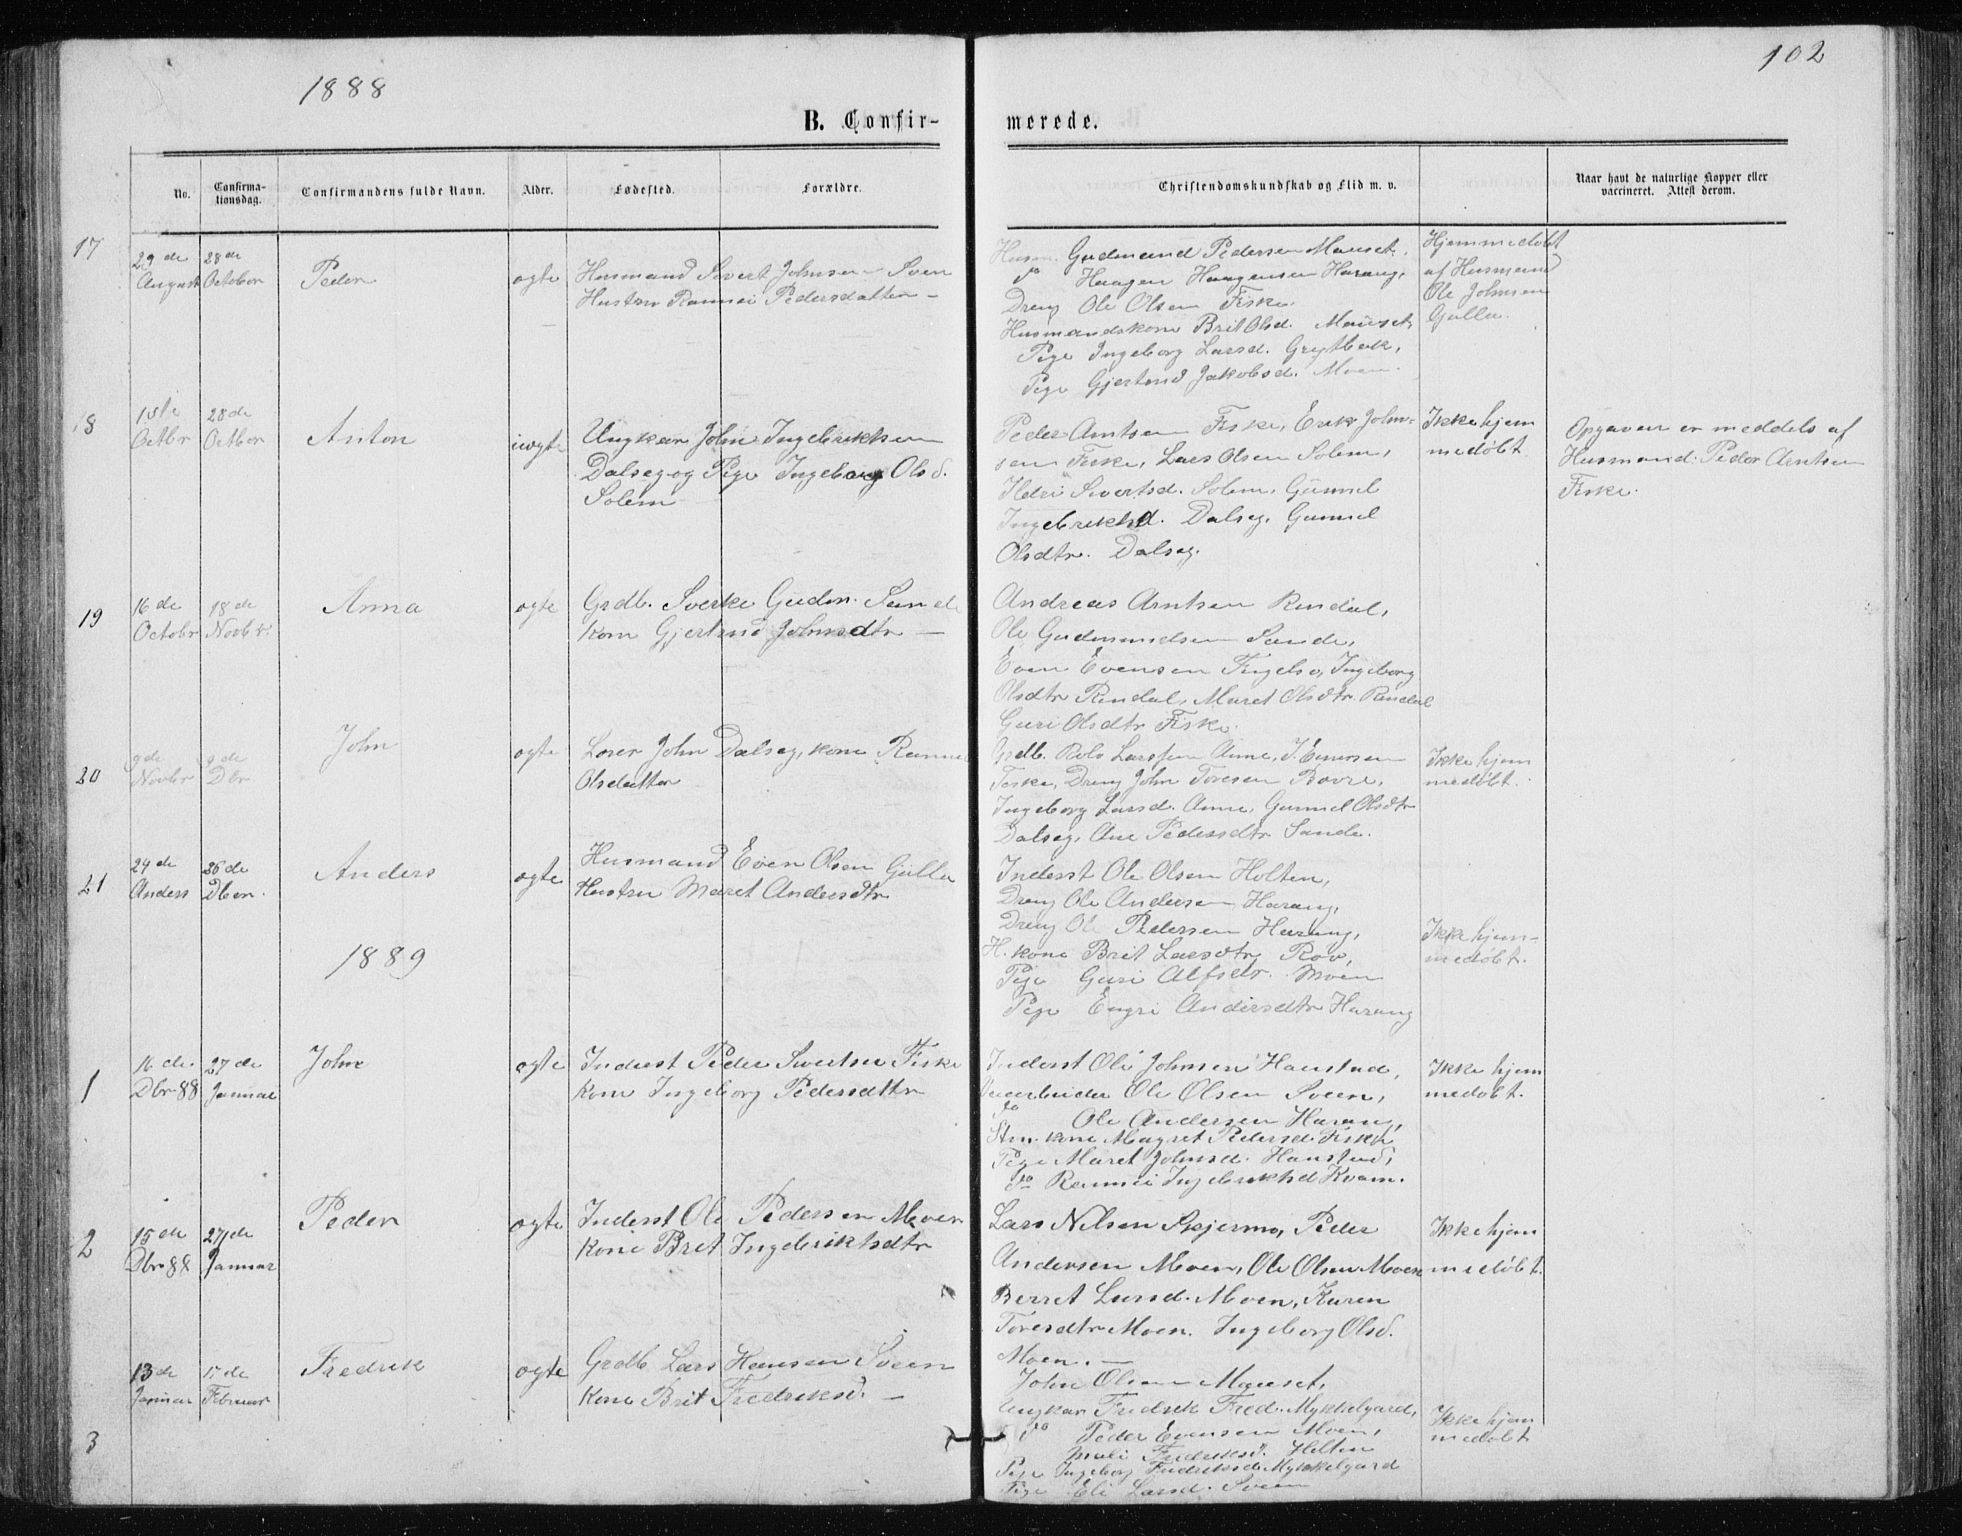 1888
102
B. Confir-
merede.
No.
Confirma-
tionsdag.
Confirmandens fulde Navn.
Alder.
Fødested.
Forældre.
Christendomskundskab og Flid m. v.
Naar havt de naturlige Kopper eller
vaccineret. Attest derom.
17
29de
August
28de
October
Peder
ægte
Husmand Sivert Johnsen Sven
Hustru Pedersdatter –
Husm. Gudmund Pedersen Mauset.
do Haagen Haagensen Harang,
Dreng Ole Olsen Fiske.
Husmandskone Brit Olsd. Mauset,
Pige Ingeborg Larsd. Grytbak,
Pige Gjertrud Jakobsd. Moen.
Hjemmedøbt
af Husmand
Ole Johnsen
Gulla.
18
1ste
Octbr
28de
Octbor
Anton
uægte
Ungkar John Ingebriktsen
Dalseg og Pige Ingeborg Olsd.
Solem
Peder Arntsen Fiske, Erik John-
sen Fiske, Lars Olsen Solem,
Sivertsd. Solem, Gunnel
Ingebriktsd. Dalseg, Gunnel
Olsdtr. Dalseg.
Ikke hjem
medøbt.
Opgaven er meddels af
Husmand Peder Arntsen
Fiske.
19
16de
Octobr
18de
Novbr.
Anna
ægte
Grdb. Sverke Gudm. Sande
Kone Gjertrud Johnsdtr –
Andreas Arntsen Rindal,
Ole Gudmundsen Sande,
Even Evensen Ingeborg
Olsdtr Rindal, Maret Olsdtr Rindal
Guri Olsdtr Fiske.
20
9de
Novbr
9de
Dbr
John
ægte
John Dalseg, kone
Olsdatter
Grdb. Larssen Aune,
Fiske, Dreng John Toresen Bøvre,
Ingeborg Larsd. Aune, Gunnel Olsdtr
Dalseg, Ane Pedersdtr Sande.
Ikke hjem
medøbt.
21
24de
Anders
26de
Dbr.
Anders
ægte
Husmand Even Olsen Gulla
Hustru Maret Andersdtr
Inderst Ole Olsen Holten,
Dreng Ole Andersen Harang,
Dreng Ole Pedersen Harang,
H. kone Brit Larsdtr Røv,
Pige Guri Alfsdtr. Moen
Pige Engri Andersdtr Harang
Ikke hjem-
medøbt.
1889
1
16de
Dbr 88
27de
Januar
John
ægte
Inderst Peder Sivertsen Fiske
Kone Ingeborg Pedersdtr
Inderst Ole Johnsen Hanstad,
Ole Olsen Sveen,
do Ole Andersen Harang,
Stm. kone Magret Pedersd. Fiske
Pige Maret Johnsd. Hanstad,
do Ingebriktsd Kvam.
Ikke hjem
medøbt.
2
15de
Dbr 88
27de
Januar
Peder
ægte
Inderst Ole Pedersen Moen
Kone Brit Ingebriktsdtr
Lars Nilsen Skjermo, Peder
Andersen Moen, Ole Olsen Moen
Berret Larsd. Moen, Karen
Toresdtr Moen. Ingeborg Olsd.
Moen. –
Ikke hjem
medøbt.
3
13de
Januar
Februar
Fredrik
ægte
Grdb. Lars Hansen Sveen
Kone Brit Fredriksd. –
John Olsen Mauset,
Ungkar Fredrik Fred. Mykkelgard,
do Peder Evensen Moen,
Mali Fredriksd. Holten
Pige Ingeborg Fredriksd. Mykkelgard
Pige Eli Larsd. Sveen
Ikke hjem
medøbt